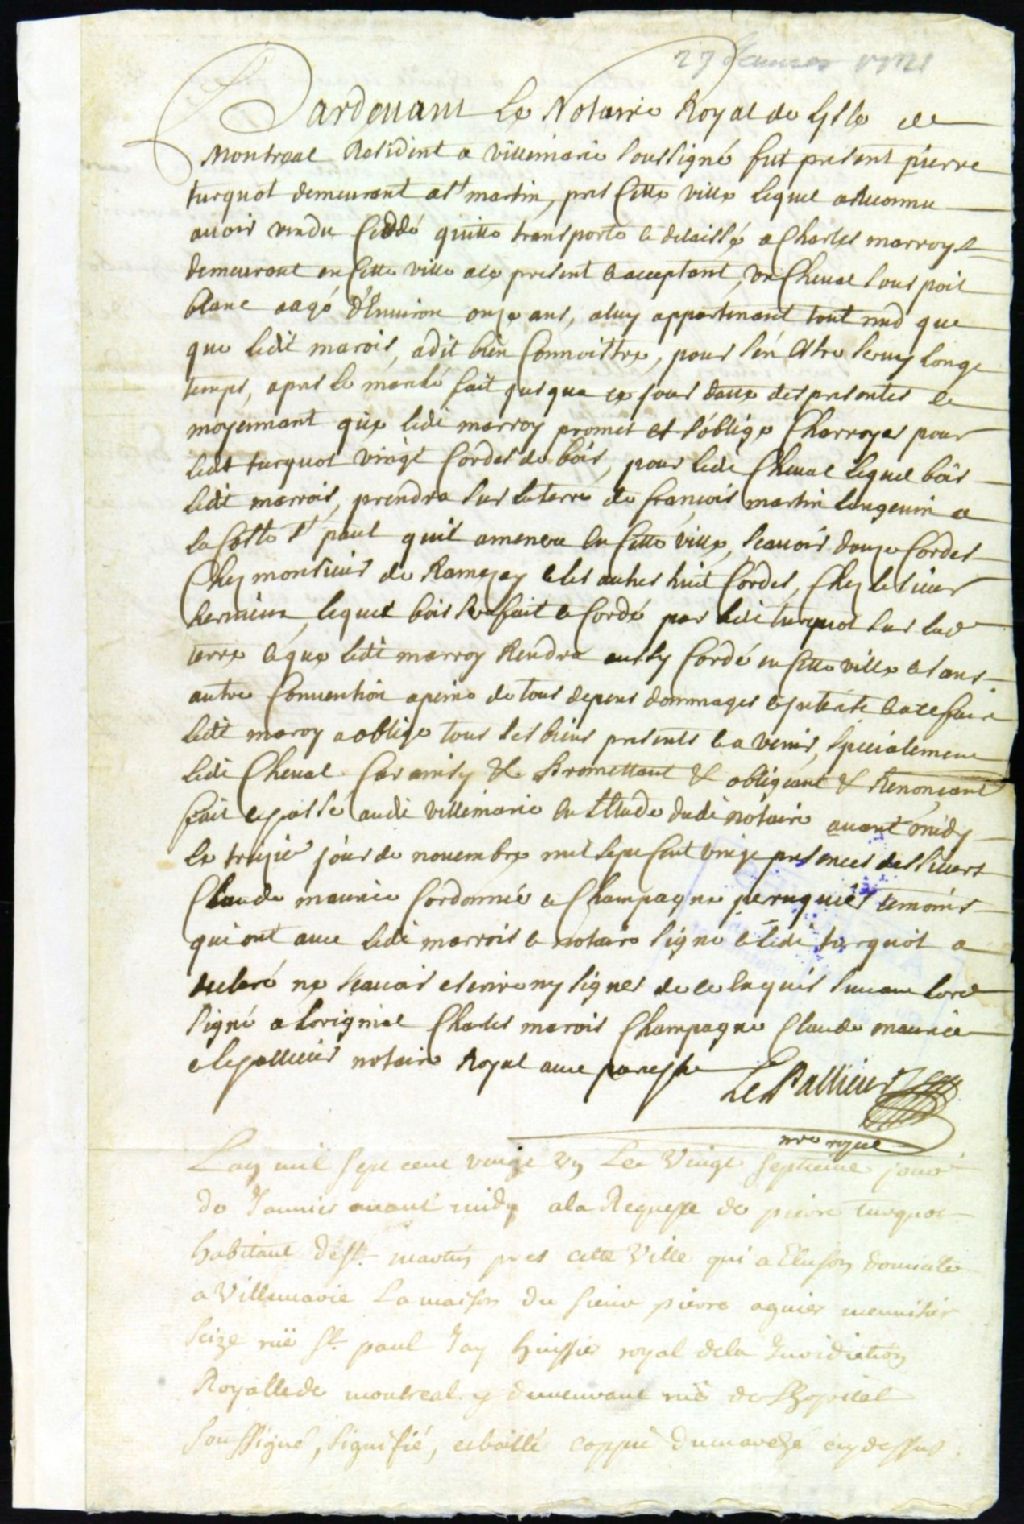 27 Janvier 1721
Pardevant Le Notaire Royal de Lisle de
Montreal Resident a villemarie soussigné fut present pierre
turquot demeurant a st martin, pres Cette ville lequel a reconnu
avoir vendu Ceddé quitté transporté et delaissé a Charles marroy
demeurant en Cette ville a ce present et acceptant, un Cheval sous poil
blanc aagé d'Environ onze ans, a luy appartenant tout nud que
que ledit marois, a dit bien Connoistre, pour s'en Estre servy longe
temps, apres le marché fait jusqua ce jour datte des presentes et
moyennant que ledit marroy promet et s'oblige Charroyer pour
ledit turquot vingt Cordes de bois, pour ledit Cheval lequel bois
ledit marrois, prendra sur la terre de francois martin langevin a
la Coste st paul quil amenera en Cette ville, scavoir douze Cordes
Chez monsieur de Ramezay et les autres huit Cordes, Chez le sieur
lequel bois sera fait et Cordé par ledit turquot sur lad
terre et que ledit marroy Rendra aussy Cordé en Cette ville et sans
autre Convention a peine de tous depens dommages et interests et a ce faire
ledit maroy a obligé tous ses biens presents et a venir, specialement
ledit Cheval Car ainsy &c Promettant &c obligeant &c Renonçant
fait et passé audit villemarie en Estude dudit notaire avant midy
le treizie jour de novembre mil sept Cent vingt presences des sieurs
Claude maurice Cordonnier et Champagne peruquier temoins
qui ont avec ledit marrois et notaire signé et ledit turquot a
declaré ne scavoir escrire ny signer de ce enquis suivant lord
signé a loriginal Charles marois Champagne Claude maurice
et lepallieur notaire Royal avec paraphe
LePallieur
nore royal
Lan mil sept cent vingt un Le Vingt septieme jour
de Janvier avant midy a la Requeste de pierre turquot
habitant de st. martin pres cette Ville qui a Elu son domicile
a Villemarie La maison du sieur pierre menuisier
seize rüe st. paul Jay huissier royal de la Juridiction
Royalle de montreal y demeurant rüe de Lhopital
soussigné, signifié, et baillé coppie du marché cy dessus.